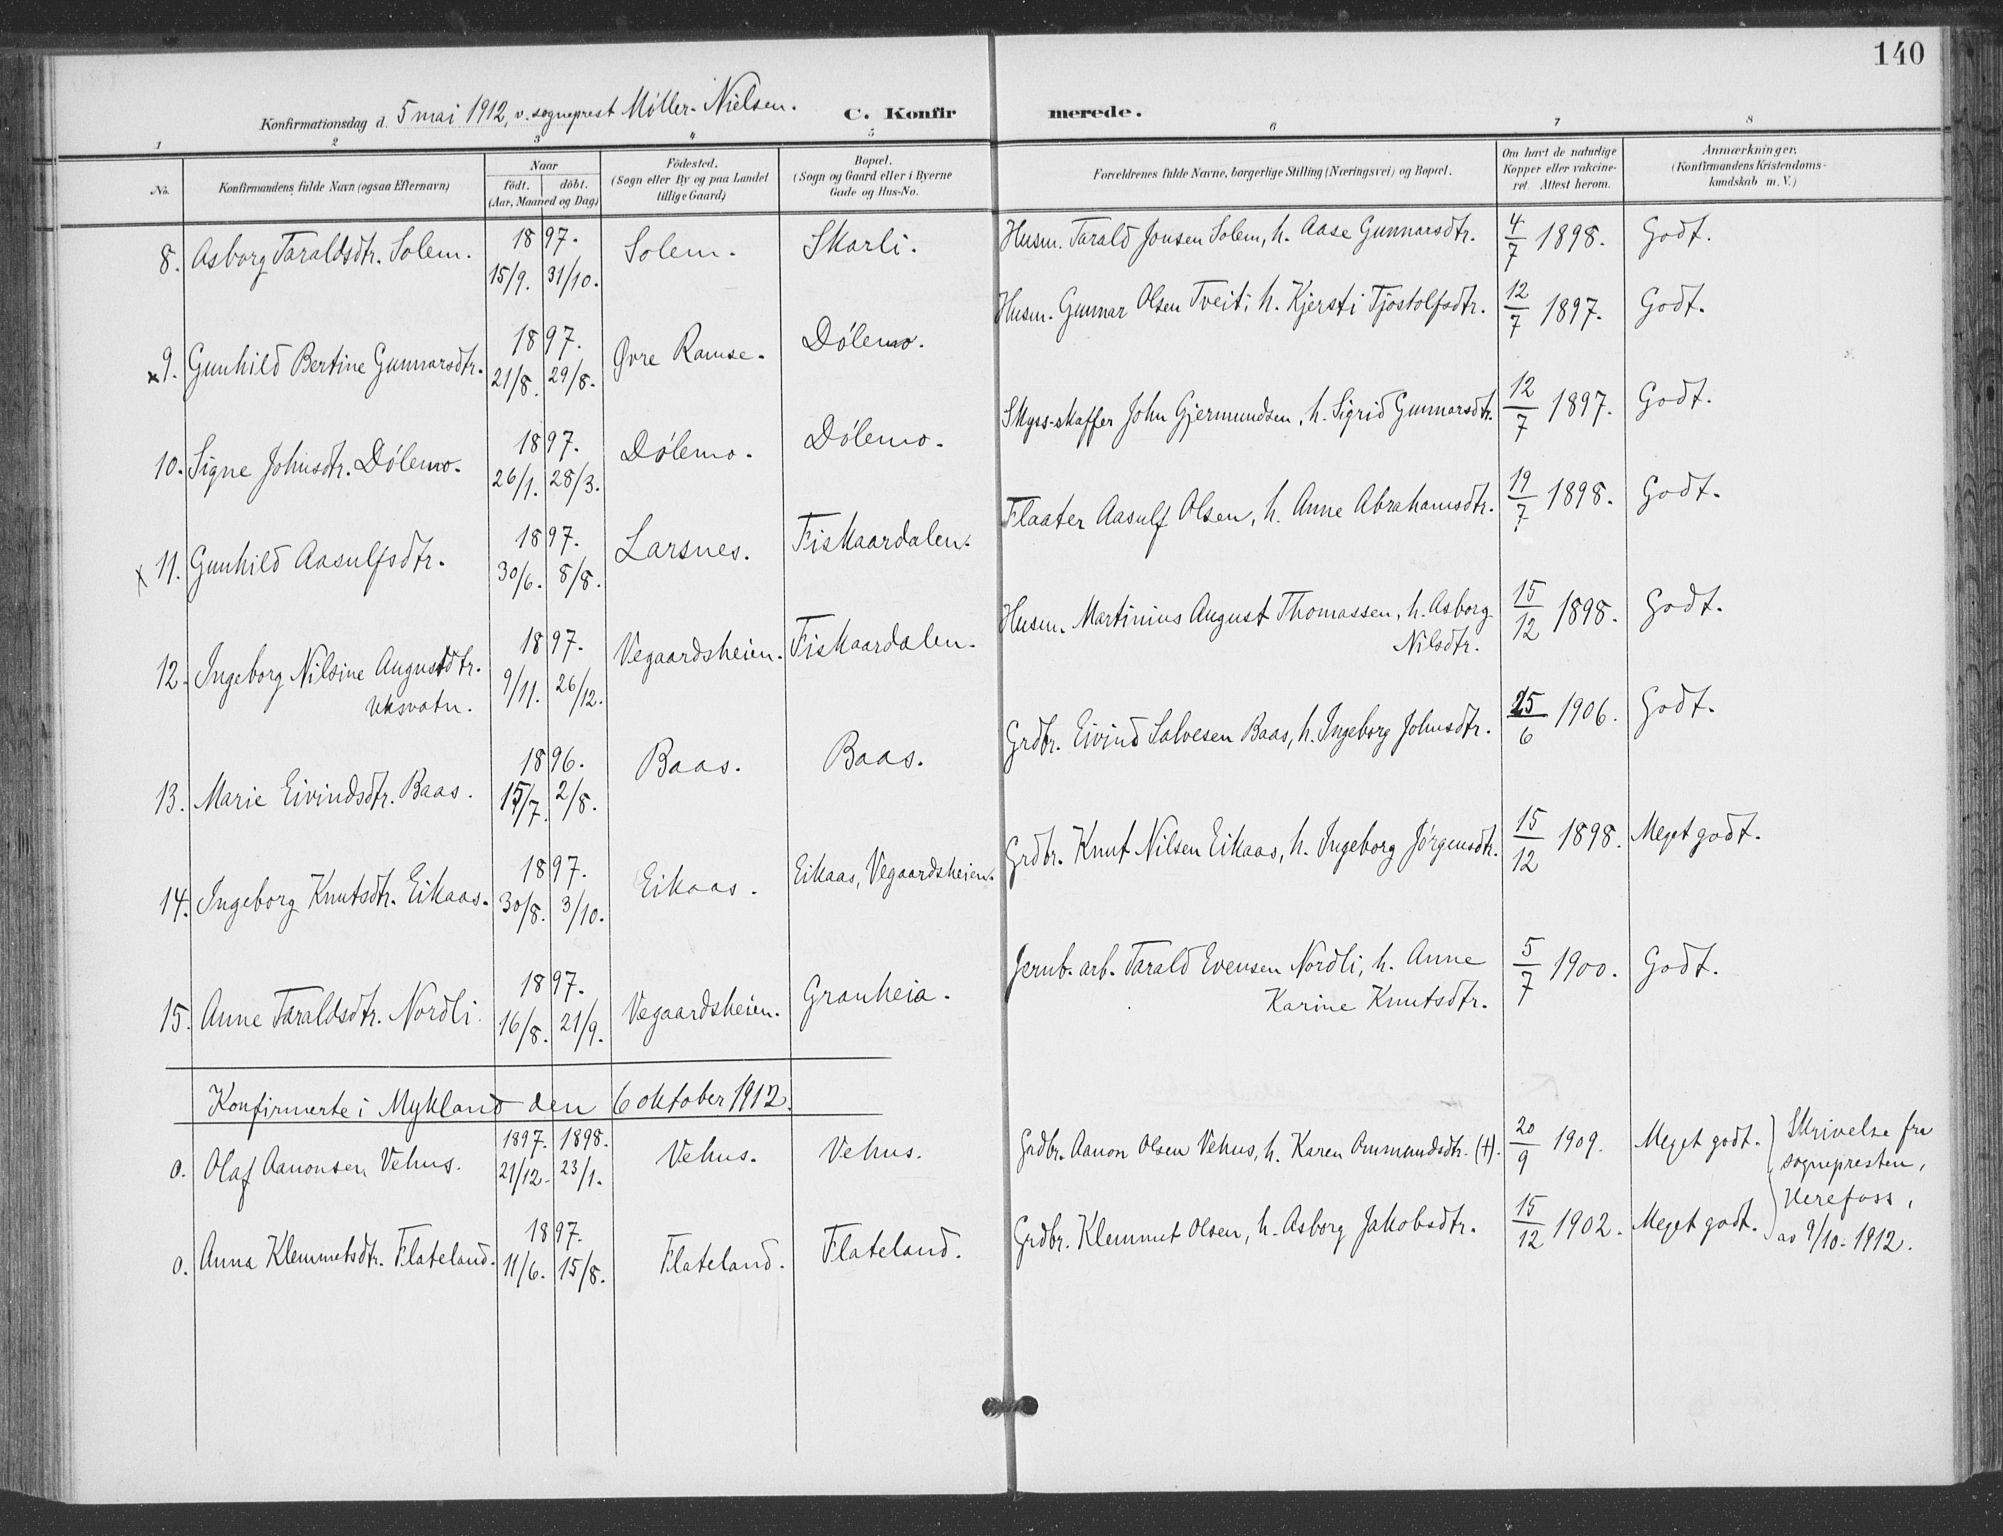 140
Konfirmationsdag d. 5 mai 1912, v. sogneprest Møller-Nielsen. C. Konfir merede.
1 2 3 4 5 6 7 8
No. Konfirmandens fulde Navn (ogsaa Efternavn) Naar født. døbt. (Aar, Maaned og Dag) Fødested. (Sogn eller By og paa Landet tillige Gaard) Bopæl. (Sogn og Gaard eller i Byerne Gade og Hus-No. Forældrenes fulde Navne, borgerlige Stilling (Næringsvei) og Bopæl. Om havt de naturlige Kopper eller vakcineret. Attest herom. Anmærkninger. (Konfirmandens Kristendomskundskab m. V.)
8. Asborg Taraldsdtr. Solem. 1897. 15/9. 31/10. Solem. Skarli. Husm. Tarald Jonsen Solem, h. Aase Gunnarsdtr. 4/7 1898. Godt.
x 9. Gunhild Bertine Gunnarsdtr. 1897. 21/8. 29/8. Øvre Ramse. Dölemo. Husm. Gunnar Olsen Tveit, h. Kjersti Tjostolfsdtr. 12/7 1897. Godt.
10. Signe Johnsdtr. Dölemo. 1897. 26/1. 28/3. Dölemo. Dölemo. Skyss-skaffer John Gjermundsen, h. Sigrid Gunnarsdtr. 12/7 1897. Godt.
x 11. Gunhild Aasulfsdtr. 1897. 30/6. 8/8. Larsnes. Fiskaardalen. Flaater Aasulf Olsen, h. Anne Abrahamsdtr. 19/7 1898. Godt.
12. Ingeborg Nilsine Augustdtr. 1897. 9/11. 26/12. Vegaardsheien. Fiskaardalen. Husm. Martinius August Thomassen, h. Asborg 15/12 1898. Godt.
Uksvatn. Nilsdtr.
13. Marie Eivindsdtr. Baas. 1896. 15/7. 2/8. Baas. Baas. Grdbr. Eivind Salvesen Baas, h. Ingeborg Johnsdtr. 25/6 1906. Godt.
14. Ingeborg Knutsdtr. Eikaas. 1897. 30/8. 3/10. Eikaas. Eikaas, Vegaardsheien. Grdbr. Knut Nilsen Eikaas, h. Ingeborg Jörgensdtr. 15/12 1898. Meget godt.
15. Anne Taraldsdtr. Nordli. 1897. 16/8. 21/9. Vegaardsheien. Granheia. Jernb. arb. Tarald Evensen Nordli, h. Anne 5/7 1900. Godt.
Karine Knutsdtr.
Konfirmerte i Mykland den 6 oktober 1912.
o. Olaf Aanonsen Vehus. 1897. 21/12. 1898. 23/1. Vehus. Vehus. Grdbr. Aanon Olsen Vehus, h. Karen Ommundsdtr. (+). 20/9 1909. Meget godt. Skrivelse fra
sognepresten,
Herefoss,
o. Anna Klemmetsdtr. Flateland. 1897. 11/6. 15/8. Flateland. Flateland. Grdbr. Klemmet Olsen, h. Asborg Jakobsdtr. 15/12 1902. Meget godt. av 9/10-1912.